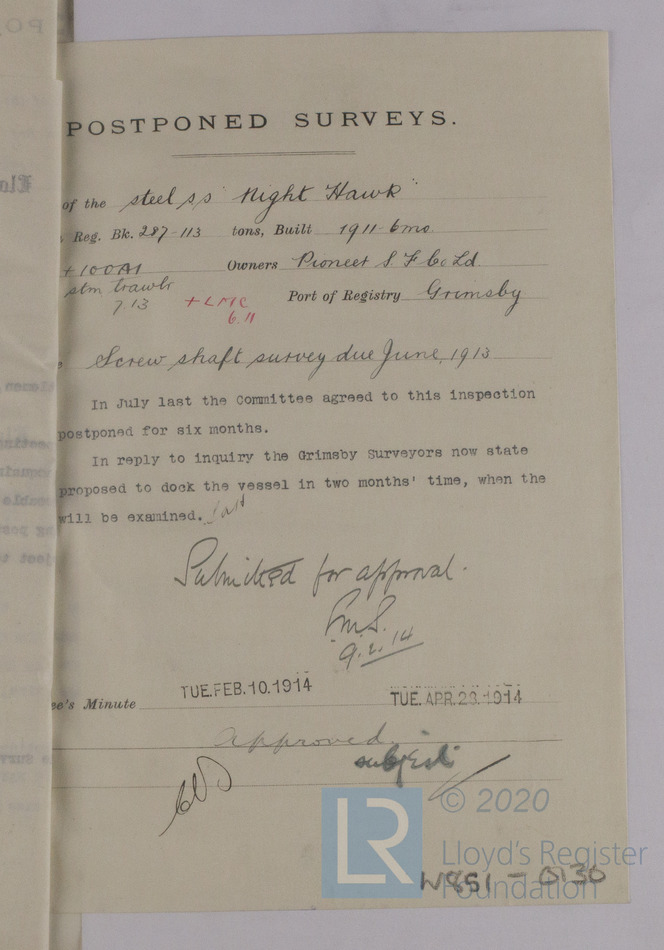 POSTPONED SURVEYS.
of the steel ss "Night Hawk"
Reg. Bk. 287-113 tons, Built 1911-6mo
+100A1 Owners Pioneer S F Co Ld.
stm trawlr
7 13 +LMC Port of Registry Grimsby
6.11
Screw shaft survey due June, 1913
In July last the Committee agreed to this inspection
postponed for six months.
In reply to inquiry the Grimsby Surveyors now state
proposed to dock the vessel in two months' time, when the
will be examined.
Submitted for approval.
9.2.14
ee's Minute TUE.FEB.10.1914 TUE.APR.28.1914
Approved
subject
LR
© 2020
Lloyd's Register
Foundation
W851-0130